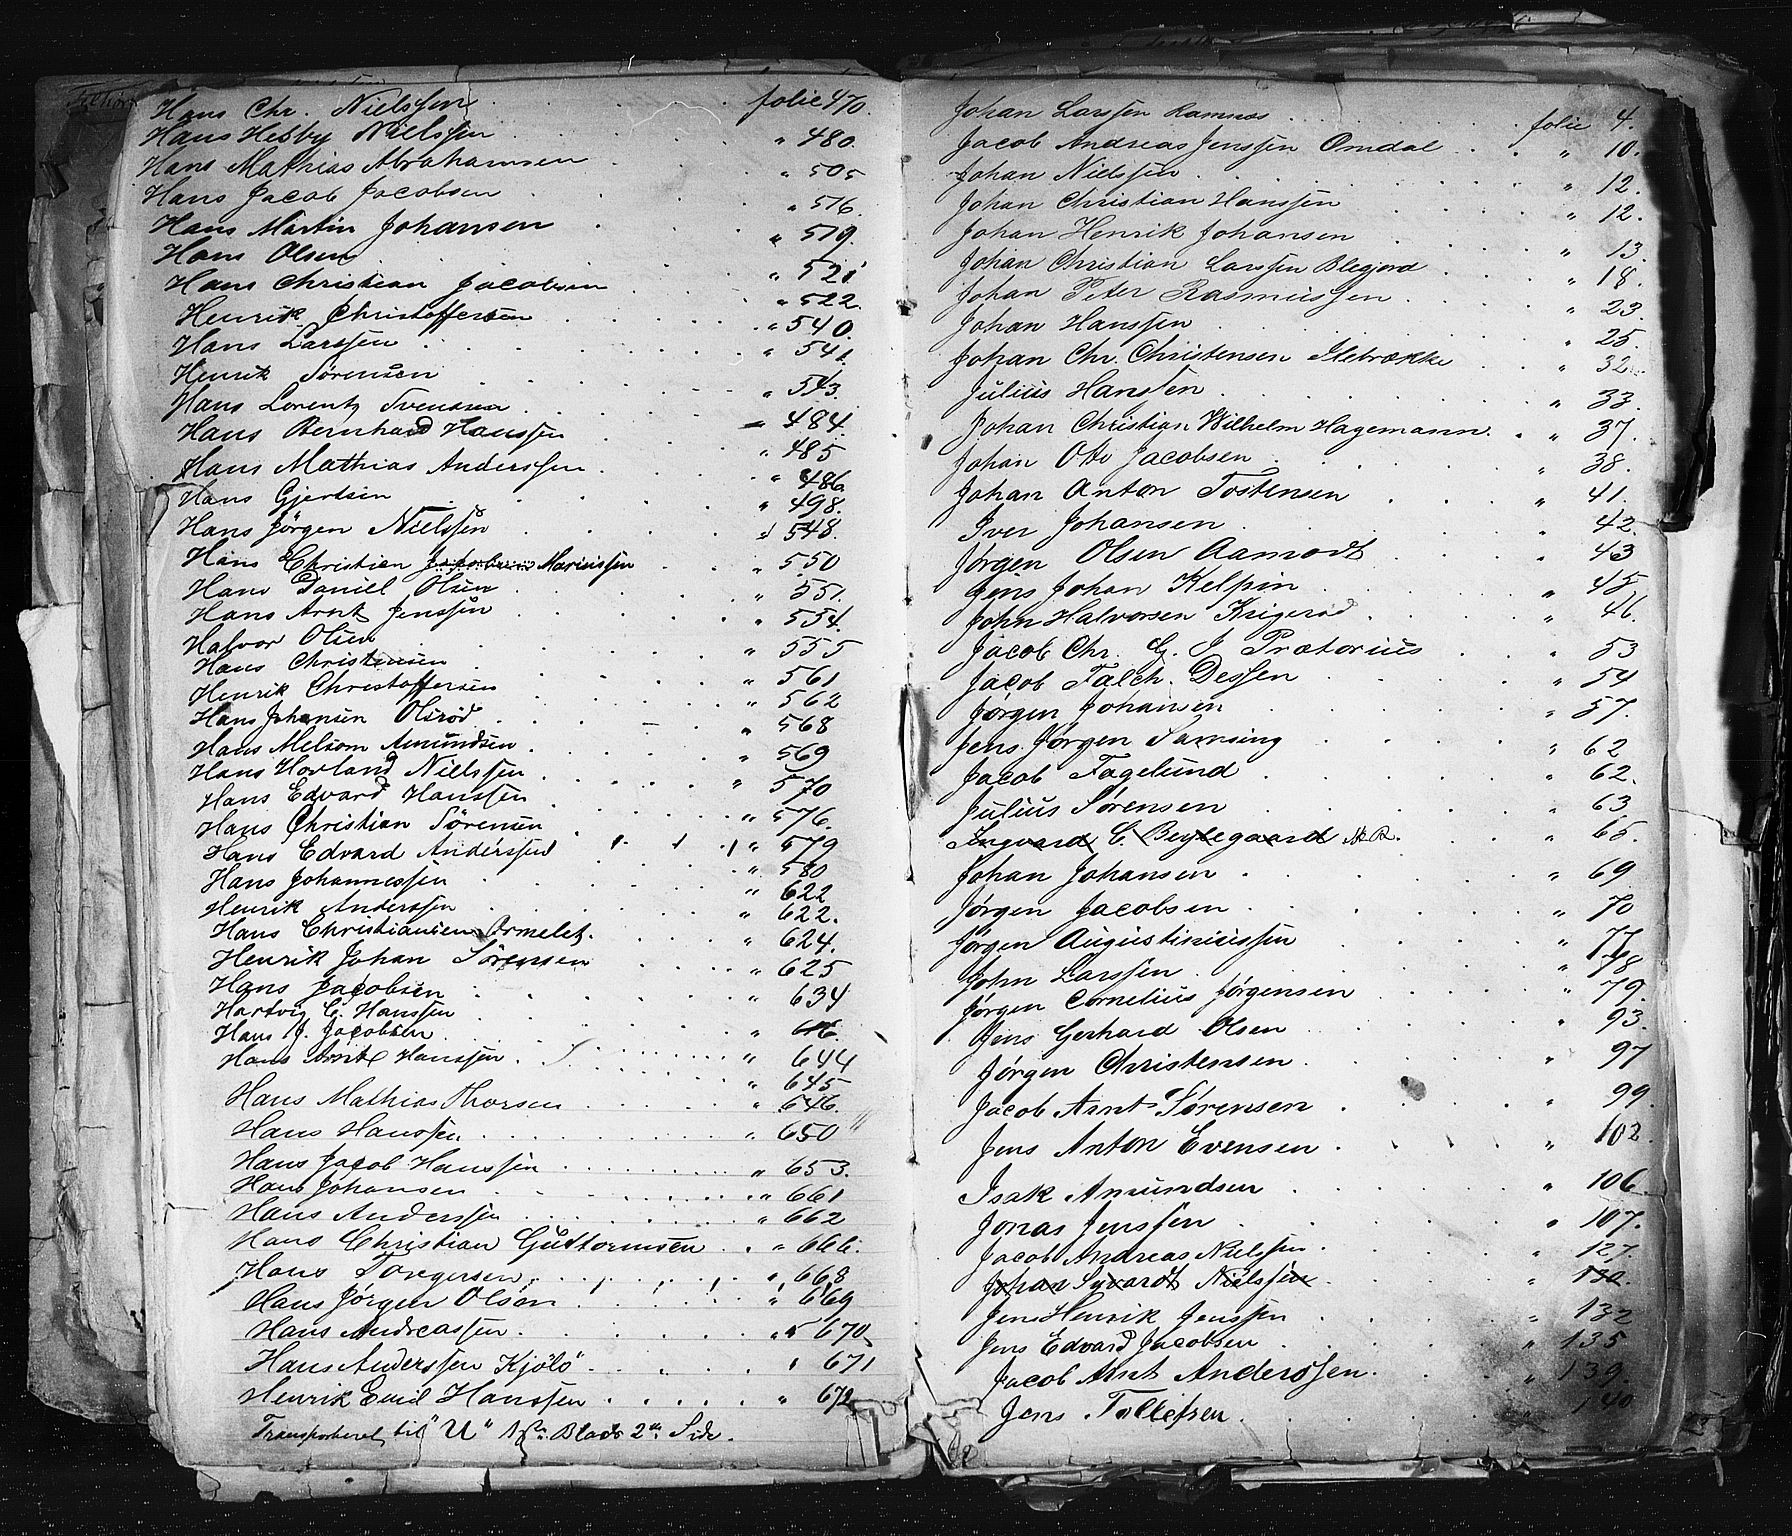 Hans Chr. Nielssen . . . folie 470.
Hans Hesby Nielssen . . . " 480.
Hans Mathias Abrahamsen . . . " 505
Hans Jacob Jacobsen . . . " 516.
Hans Martin Johansen . . . " 519.
Hans Olsen . . . " 521
Hans Christian Jacobsen . . . " 522.
Henrik Christoffersen . . . " 540.
Hans Larssen . . . " 541.
Henrik Sørensen . . . " 543.
Hans Lorentz Svensen . . . " 484.
Hans Bernhard Hanssen . . . " 485
Hans Mathias Anderssen . . . " 486.
Hans Gjertsen . . . " 498.
Hans Jörgen Nielssen . . . " 548.
Hans Christian Jakobsen Mariussen . . . " 550
Hans Daniel Olsen . . . " 551.
Hans Arnt Jenssen . . . " 554.
Halvor Olsen . . . " 555
Hans Christensen . . . " 561
Henrik Christoffersen . . . " 562
Hans Johansen Olsrød . . . " 568
Hans Melsom Amundsen . . . " 569
Hans Hovland Nielssen . . . " 570
Hans Edvard Hanssen . . . " 576.
Hans Christian Sörensen . . . " 579
Hans Edvard Anderssen . . . " 580
Hans Johannessen . . . " 622
Henrik Anderssen . . . " 622.
Hans Christiansen Ormelet . . . " 624.
Henrik Johan Sörensen . . . " 625
Hans Jacobsen . . . " 634
Hartvig C. Hanssen
Hans J. Jacobsen . . . " 644
Hans Arnt Hanssen . . . " 645
Hans Mathias Thorsen . . . " 646.
Hans Hanssen . . . " 650 "
Hans Jacob Hanssen . . . " 653.
Hans Johansen . . . " 661
Hans Anderssen . . . " 662
Hans Christian Guttormsen . . . " 666.
Hans Torgersen . . . " 668
Hans Jörgen Olsen . . . " 669
Hans Andreassen . . . " 670
Hans Anderssen Kjölö . . . " 671
Henrik Emil Hanssen . . . " 672
Transporteret til "U" 1ste Blads 2den Side.
Johan Larssen Ramnes . . . folie 4.
Jacob Andreas Jenssen Omdal . . . " 10.
Johan Nielssen . . . " 12.
Johan Christian Hanssen . . . " 12.
Johan Henrik Johansen . . . " 13.
Johan Christian Larssen Blegjord . . . " 18.
Johan Peter Rasmussen . . . " 23.
Johan Hanssen . . . " 25.
Johan Chr. Christensen Slebrække . . . " 32
Julius Hanssen . . . " 33.
Johan Christian Wilhelm Hagemann . . . " 37.
Johan Otto Jacobsen . . . " 38.
Johan Anton Tostensen . . . " 41.
Iver Johansen . . . " 42.
Jørgen Olsen Aamodt . . . " 43
Jens Johan Kelpin . . . " 45
John Halvorsen Krigerød . . . " 46.
Jacob Chr. G. J. Prætorius . . . " 53
Jacob Falch. Dessen . . . " 54
Jørgen Johansen . . . " 57.
Jens Jørgen Samsing . . . " 62
Jacob Fagelund . . . " 62.
Julius Sørensen . . . " 63
Ingvard C. Beylegaard . . . " 65.
Johan Johansen . . . " 69
Jørgen Jacobsen . . . " 70
Jørgen Augustiniussen . . . " 77
John Larssen . . . " 78
Jørgen Cornelius Jørgensen . . . " 79.
Jens Gerhard Olsen . . . " 93.
Jørgen Christensen . . . " 97
Jacob Arnt Sørensen . . . " 99.
Jens Anton Evensen . . . " 102.
Isak Amundsen . . . " 106
Jonas Jenssen . . . " 107.
Jacob Andreas Nielssen . . . " 127.
Johan Syvardt Nielssen . . . " 130.
Jens Henrik Jenssen . . . " 132
Jens Edvard Jacobsen . . . " 135
Jacob Arnt Anderssen . . . " 139.
Jens Tollefsen . . . 140